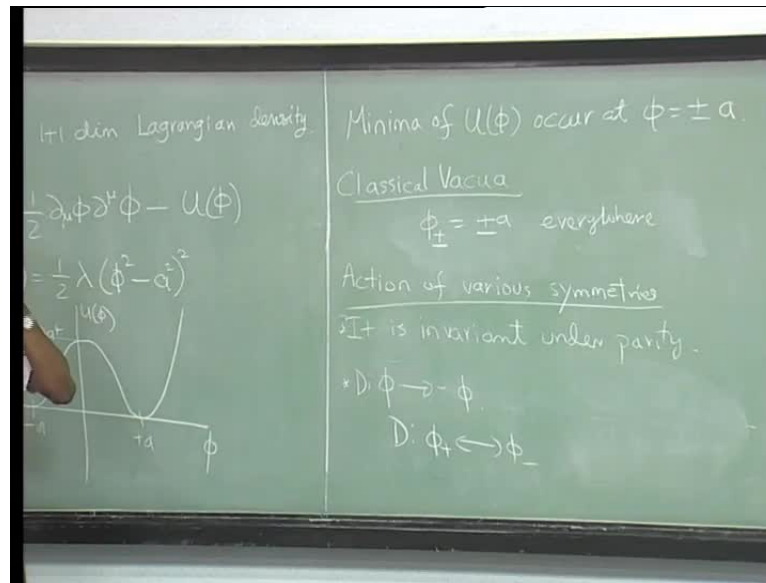 1+1 dim Lagrangian density.
1/2 ∂μϕ∂^μϕ − U(ϕ)
) = 1/2 λ(ϕ² − a²)²
U(ϕ)
−a
+a
ϕ
Minima of U(ϕ) occur at ϕ = ± a.
Classical Vacua
ϕ± = ±a everywhere
Action of various symmetries
*It is invariant under parity.
*D: ϕ → − ϕ.
D: ϕ+ ↔ ϕ−